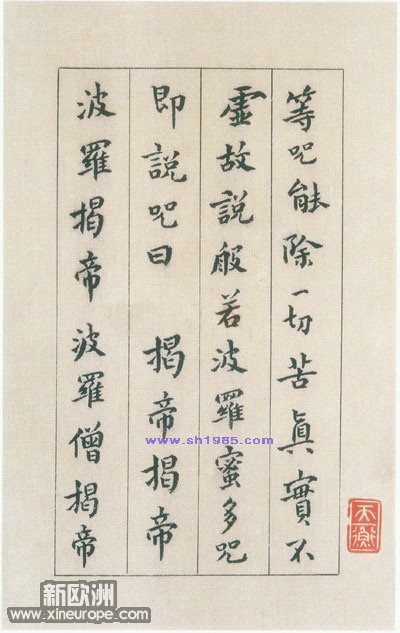 等咒能除一切苦真實不
虛故說般若波羅蜜多咒
即說咒曰 揭帝揭帝
波羅揭帝波羅僧揭帝
天衡
www.sh1985.com
新欧洲
www.xineurope.com